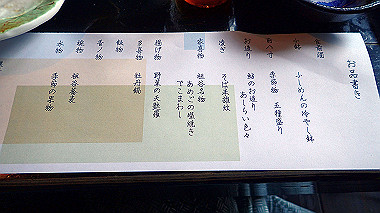 お品書き
食前酒
小鉢 ふーめんの冷やし鉢
前八寸 季節物 五種盛り
お造り 鮎のお造り
あしらい色々
凌ぎ そば米雑炊
名喜物 祖谷名物
あめごの塩焼き
でこまわし
揚げ物 野菜の天麩羅
多喜物 牡丹鍋
飯物
香の物
椀物 祖谷蕎麦
水物 季節の果物